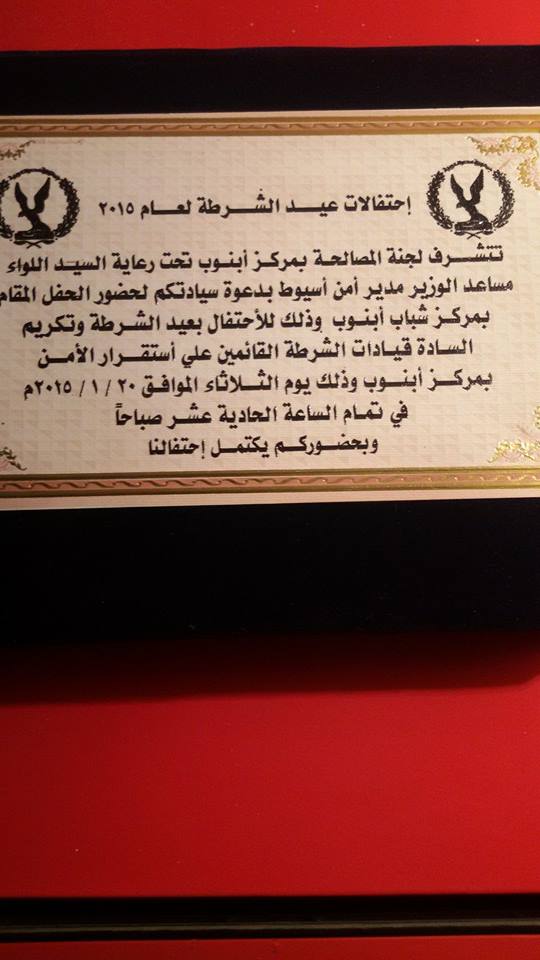 إحتفالات عيد الشرطة لعام ٢٠١٥
تتشرف لجنة المصالحة بمركز أبنوب تحت رعاية السيد اللواء
مساعد الوزير مدير أمن أسيوط بدعوة سيادتكم لحضور الحفل المقام
بمركز شباب أبنوب وذلك للأحتفال بعيد الشرطة وتكريم
السادة قيادات الشرطة القائمين علي أستقرار الأمن
بمركز أبنوب وذلك يوم الثلاثاء الموافق ٢٠ / ١ / ٢٠١٥م
في تمام الساعة الحادية عشر صباحاً
وبحضوركم يكتمل إحتفالنا